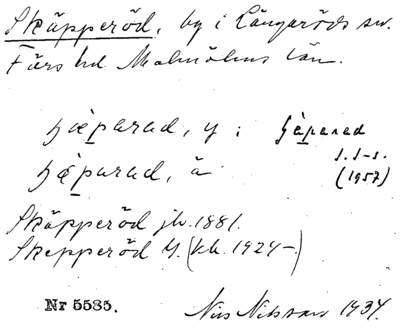 Skäpperöd, by i Långaröds sn.
Färs hd. Malmöhus län.
ʃæparad, y; ʃæparad
ʃæparad, ä
1.1-s.
(1957)
Skäpperöd jb. 1881.
Skepperöd Y. (kk. 1924-.)
Nr 5585. Nils Nilsson 1934.